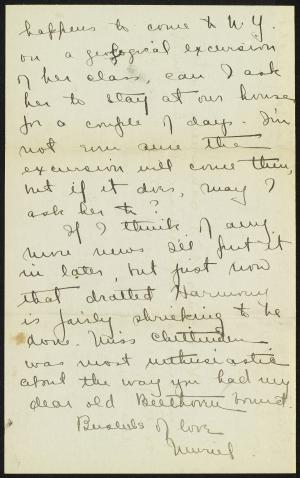 happens to come to N.Y.
on a geological excursion
of her class, can I ask
her to stay at our house
for a couple of days. I'm
not sure the
excursion will come then,
but if it does, may I
ask her to?
If I think of any
more news I'll put it
in later, but just now
that dratted Harmony
is fairly shrieking to be
done. Miss Chittenden
was most enthusiastic
about the way you had my
dear old Beethoven bound.
Bushels of love
Muriel